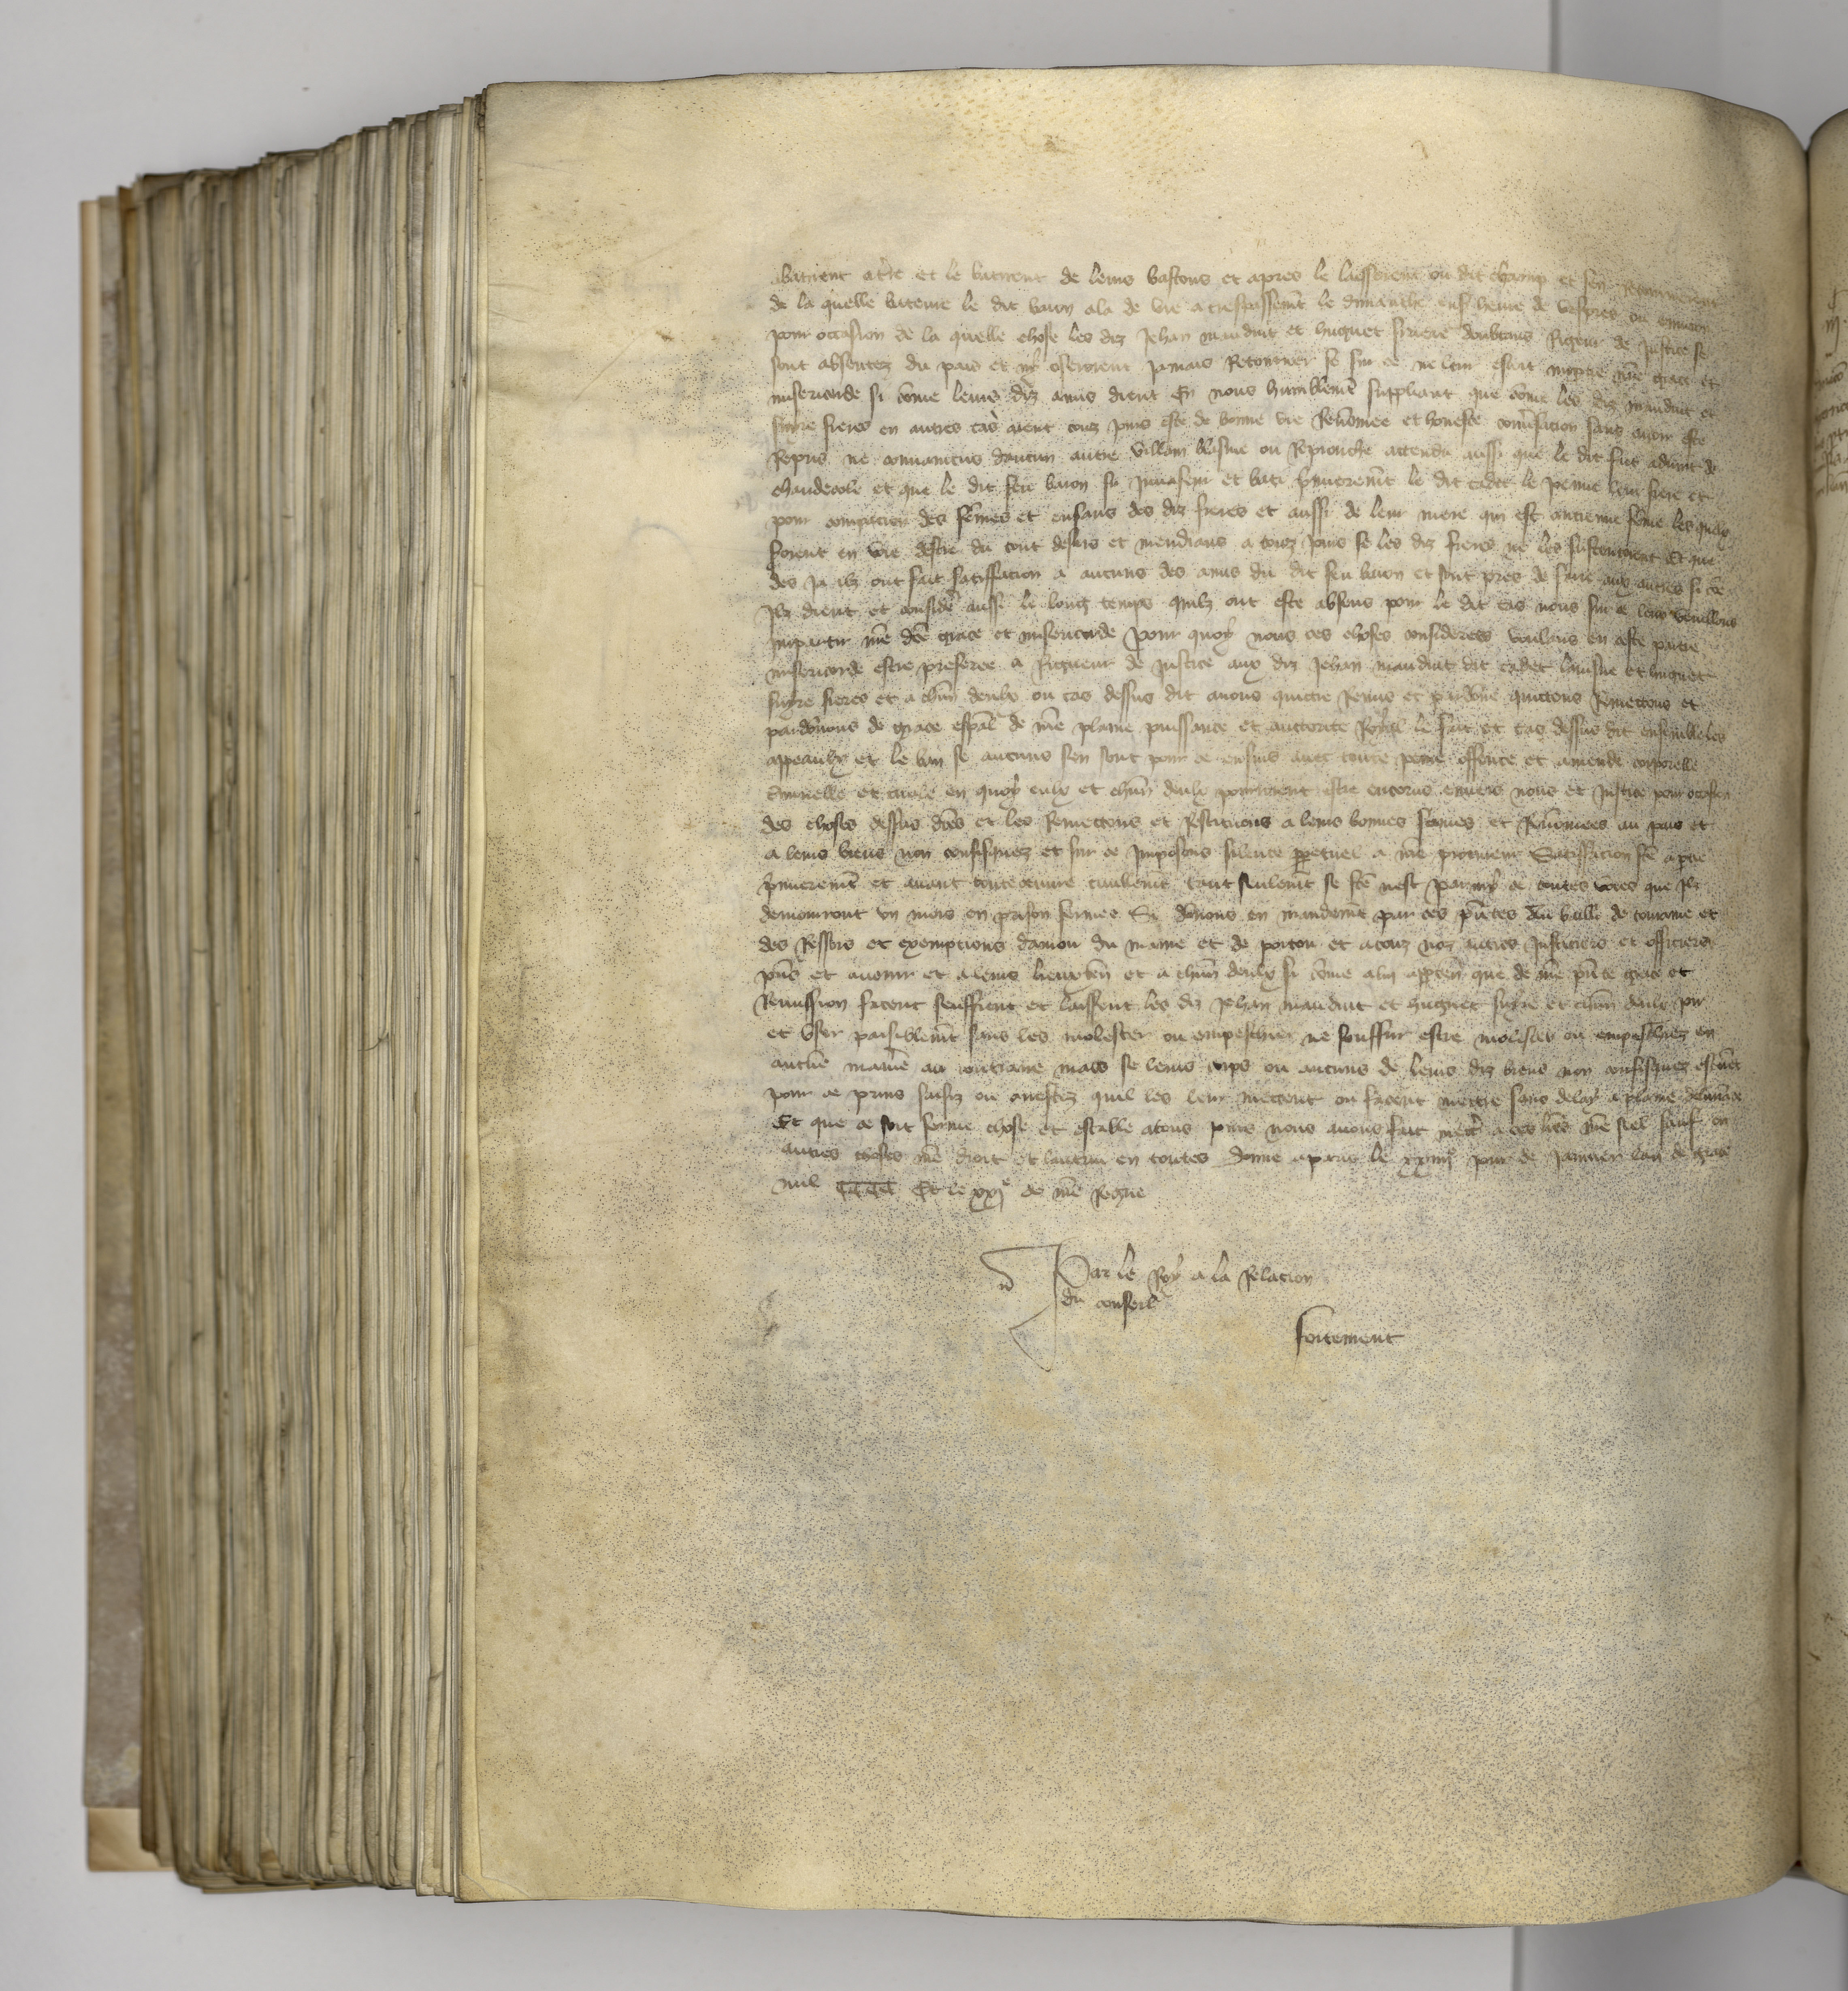 abatirent a t̄re et le batirent de leurs bastons et apres le laisserent ou dit champ et sen retournerent
de la quelle bateure le dit baron ala de vie a trespassem̄t le dimanche ens. heure de vespres ou environ
pour occasion de la quelle chose les diz Jehan mauduit et huguet frere doubtans rigour de justice se
sont absentez du pais et ny oseroient jamais retourner se sur ce ne leur estoit impartie nr̄e grace et
misericorde si cōme leurs diz amis dient En nous humblemēt suppliant que cōme les diz mauduit et
freres en autres cas aient touz jours este de bonne vie renōmee et honeste cōv̄sacion sans avoir este
repris ne convaincus daucun autre villain blasme ou reprouche attendu aussi que le dit fait advint de
chaudecole et que le dit feu baron fu invaseur et bati p̄mieremēt le dit cadet le jeune leur frere et
pour compacion des fēmes et enfans des diz freres et aussi de leur mere qui est ancienne fēme les quelx
seroient en voie destre du tout desers et mendians a touz jours se les diz freres ne les sustentoient Et que
des ja ilz ont fait satiffacion a aucuns des amis du dit feu baron et sont prests de faire aux autres si cōe
ilz dient et considéré aussi le long temps quilz ont este absens pour le dit cas nous sur ce leur vueillons
impartir nr̄e dc̄e grace et misericorde Pour quoy nous ces choses considerees voulans en ceste partie
misericorde estre preferee a rigueur de justice aux diz Jehan mauduit dit cadet lainsne et huguet
freres et a chūn deulx ou cas dessus dit avons quictie remis et pardōne quittons remettons et
pardōnons de grace esp̄al de nr̄e plaine puissance et auctorite royal le fait et cas dessus dit ensemble les
appeaulx et le ban se aucuns sen sont pour ce ensuis avec toute peine offence et amende corporelle
criminelle et civile en quoy eulx et chūn deulx pourroient estre encorus envers nous et justice pour occasion
des choses dessus dc̄es et les remettons et restituons a leurs bonnes fames et renōmees au pais et
a leurs biens non confisquez et sur ce imposons silence p̄petuel a nr̄e procureur Satiffacion fc̄e a ptie
p̄mieremēt et avant toute euvre civilemēt tant seulemēt se fc̄e nest parmy ce toutes voies que ilz
demourront un mois en prison fermee Si dōnons en mandemēt par ces pn̄tes au bailli de touraine et
des ressors et exempcions danjou du maine et de poitou et a touz noz autres justiciers et officiers
pn̄s et avenir et a leurs lieuxten̄ et a chūn deulx si cōme a lui app̄ten̄ que de nr̄e pn̄te grace et
remission facent seuffrent et laissent les diz Jehan mauduit et huguet et chūn deulx joir
et user paisiblemēt sans les molester ou empeschier ne souffrir estre molestez ou empeschiez en
aucūe maniē au contraire mais se leurs corps ou aucuns de leurs diz biens non confisquez estoiēt
pour ce prins saisiz ou arrestez quil les leur mettent ou facent mettre sans delay a plaine delivrāce
Et que ce soit ferme chose et estable a tous jours nous avons fait mett̄ a ces lr̄es nr̄e seel sauf en
autres choses nr̄e droit et lautrui en toutes donne a paris le xxiiiiᵉ jour de janvier lan de grace
mil cccc Et le xxjᵉ de nr̄e regne
Par le Roy a la relacion
du conseil
fortement